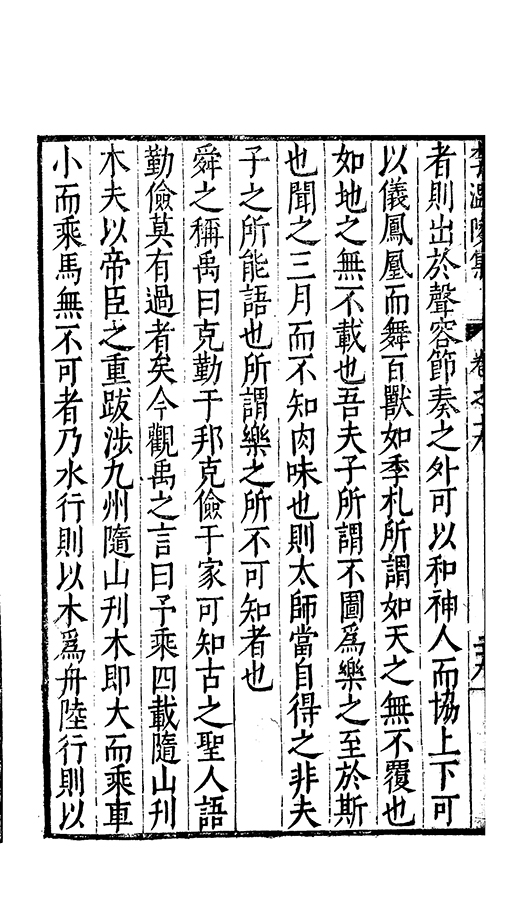 李溫陵集 卷之十九
者則出於聲容節奏之外可以和神人而協上下可
以儀鳳凰而舞百獸如季札所謂如天之無不覆也
如地之無不載也吾夫子所謂不圖爲樂之至於斯
也聞之三月而不知肉味也則太師當自得之非夫
子之所能語也所謂樂之所不可知者也
舜之稱禹曰克勤于邦克儉于家可知古之聖人語
勤儉莫有過者矣今觀禹之言曰予乘四載隨山刋
木夫以帝臣之重跋涉九州隨山刋木即大而乘車
小而乘馬無不可者乃水行則以木爲舟陸行則以